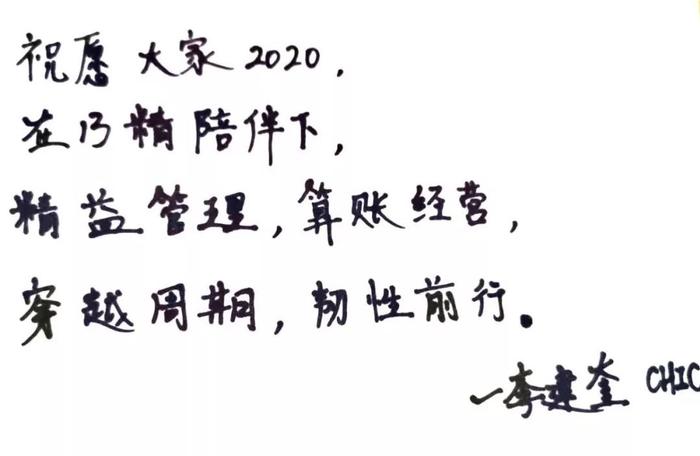 祝愿大家2020，
在13精陪伴下，
精益管理，算账经营，
穿越周期，韧性前行。
—李建奎 CHIC